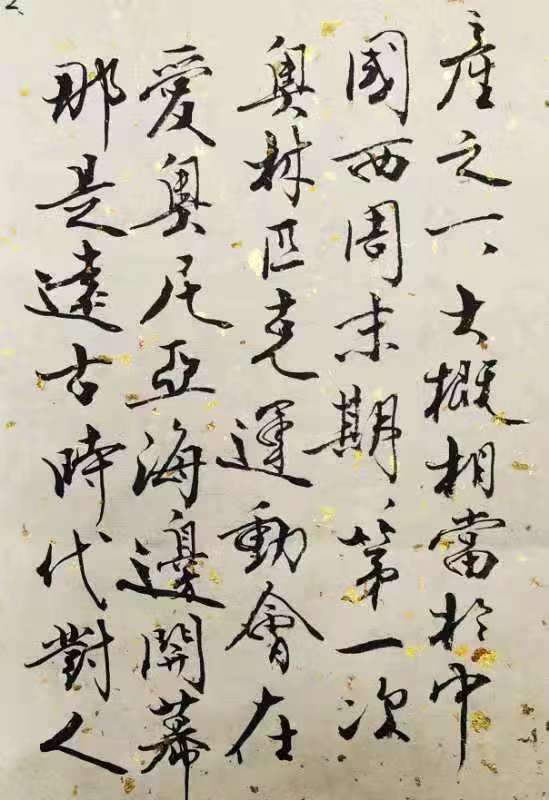 產之一、大概相當於中
國西周末期、第一次
奧林匹克運動會在
愛奧尼亞海邊開幕
那是遠古時代對人